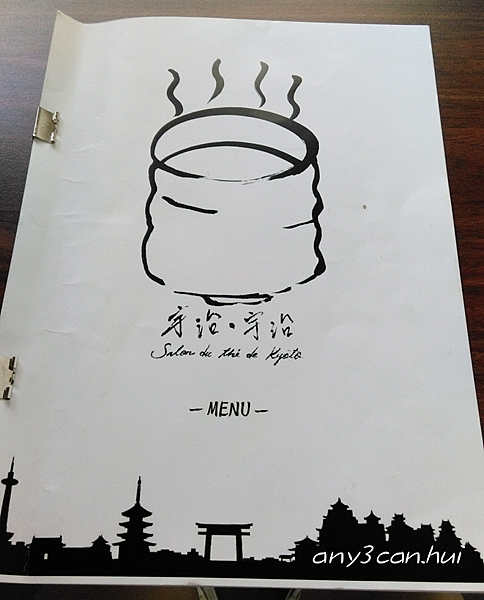 宇治·宇治
Salon du thé de Kyoto
– MENU –
any3can.hui